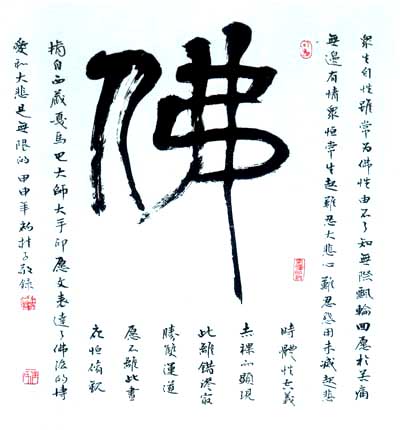 佛
眾生自性雖常为佛性由不了知無際飄輪回愿於苦痛
無邊有情眾恒常生起難忍大悲心難忍悲用未滅起悲
時體性空義
赤裸而顯現
此離錯謬最
勝雙運道
愿不離此晝
夜恒脩觀
摘自西藏噶馬巴大師大手印愿文表達了佛法的博
愛和大悲是無限的甲申年敬錄